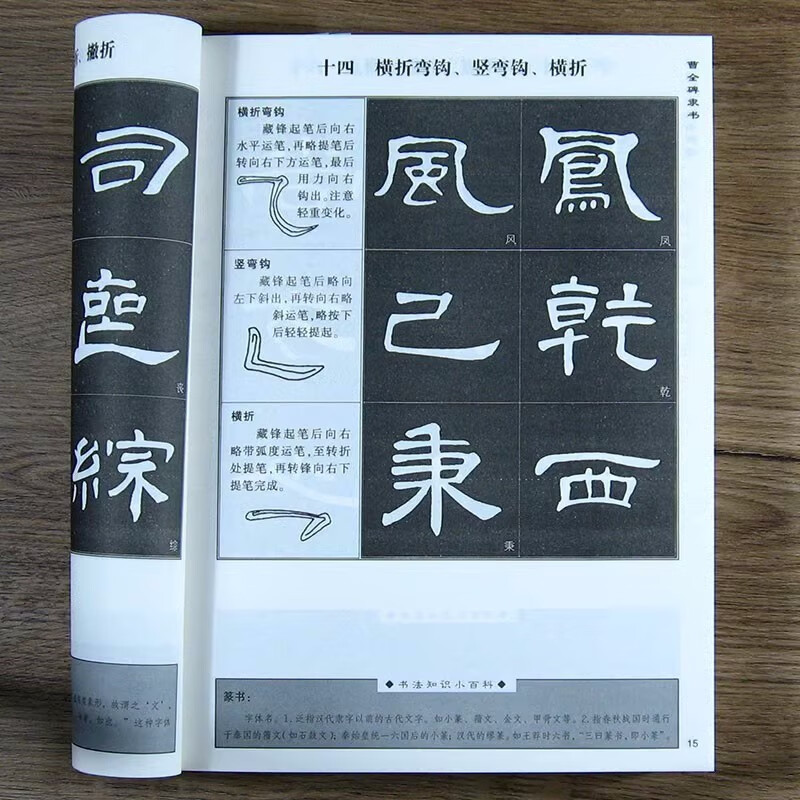 、撇折
司
喪
丧
綜
综
故谓之‘文’，
如此。”这种字体
十四 横折弯钩、竖弯钩、横折
曹全碑隶书
横折弯钩
藏锋起笔后向右
水平运笔，再略提笔后
转向右下方运笔，最后
用力向右
钩出。注意
轻重变化。
風
风
鳳
凤
竖弯钩
藏锋起笔后略向
左下斜出，再转向右略
斜运笔，略按下
后轻轻提起。
己
乾
乾
横折
藏锋起笔后向右
略带弧度运笔，至转折
处提笔，再转锋向右下
提笔完成。
秉
秉
西
◆书法知识小百科◆
篆书：
字体名。1. 泛指汉代隶字以前的古代文字。如小篆、籀文、金文、甲骨文等。2. 指春秋战国时通行
于秦国的籀文（如石鼓文）；秦始皇统一六国后的小篆；汉代的缪篆。如王莽时六书，“三曰篆书，即小篆”。
15